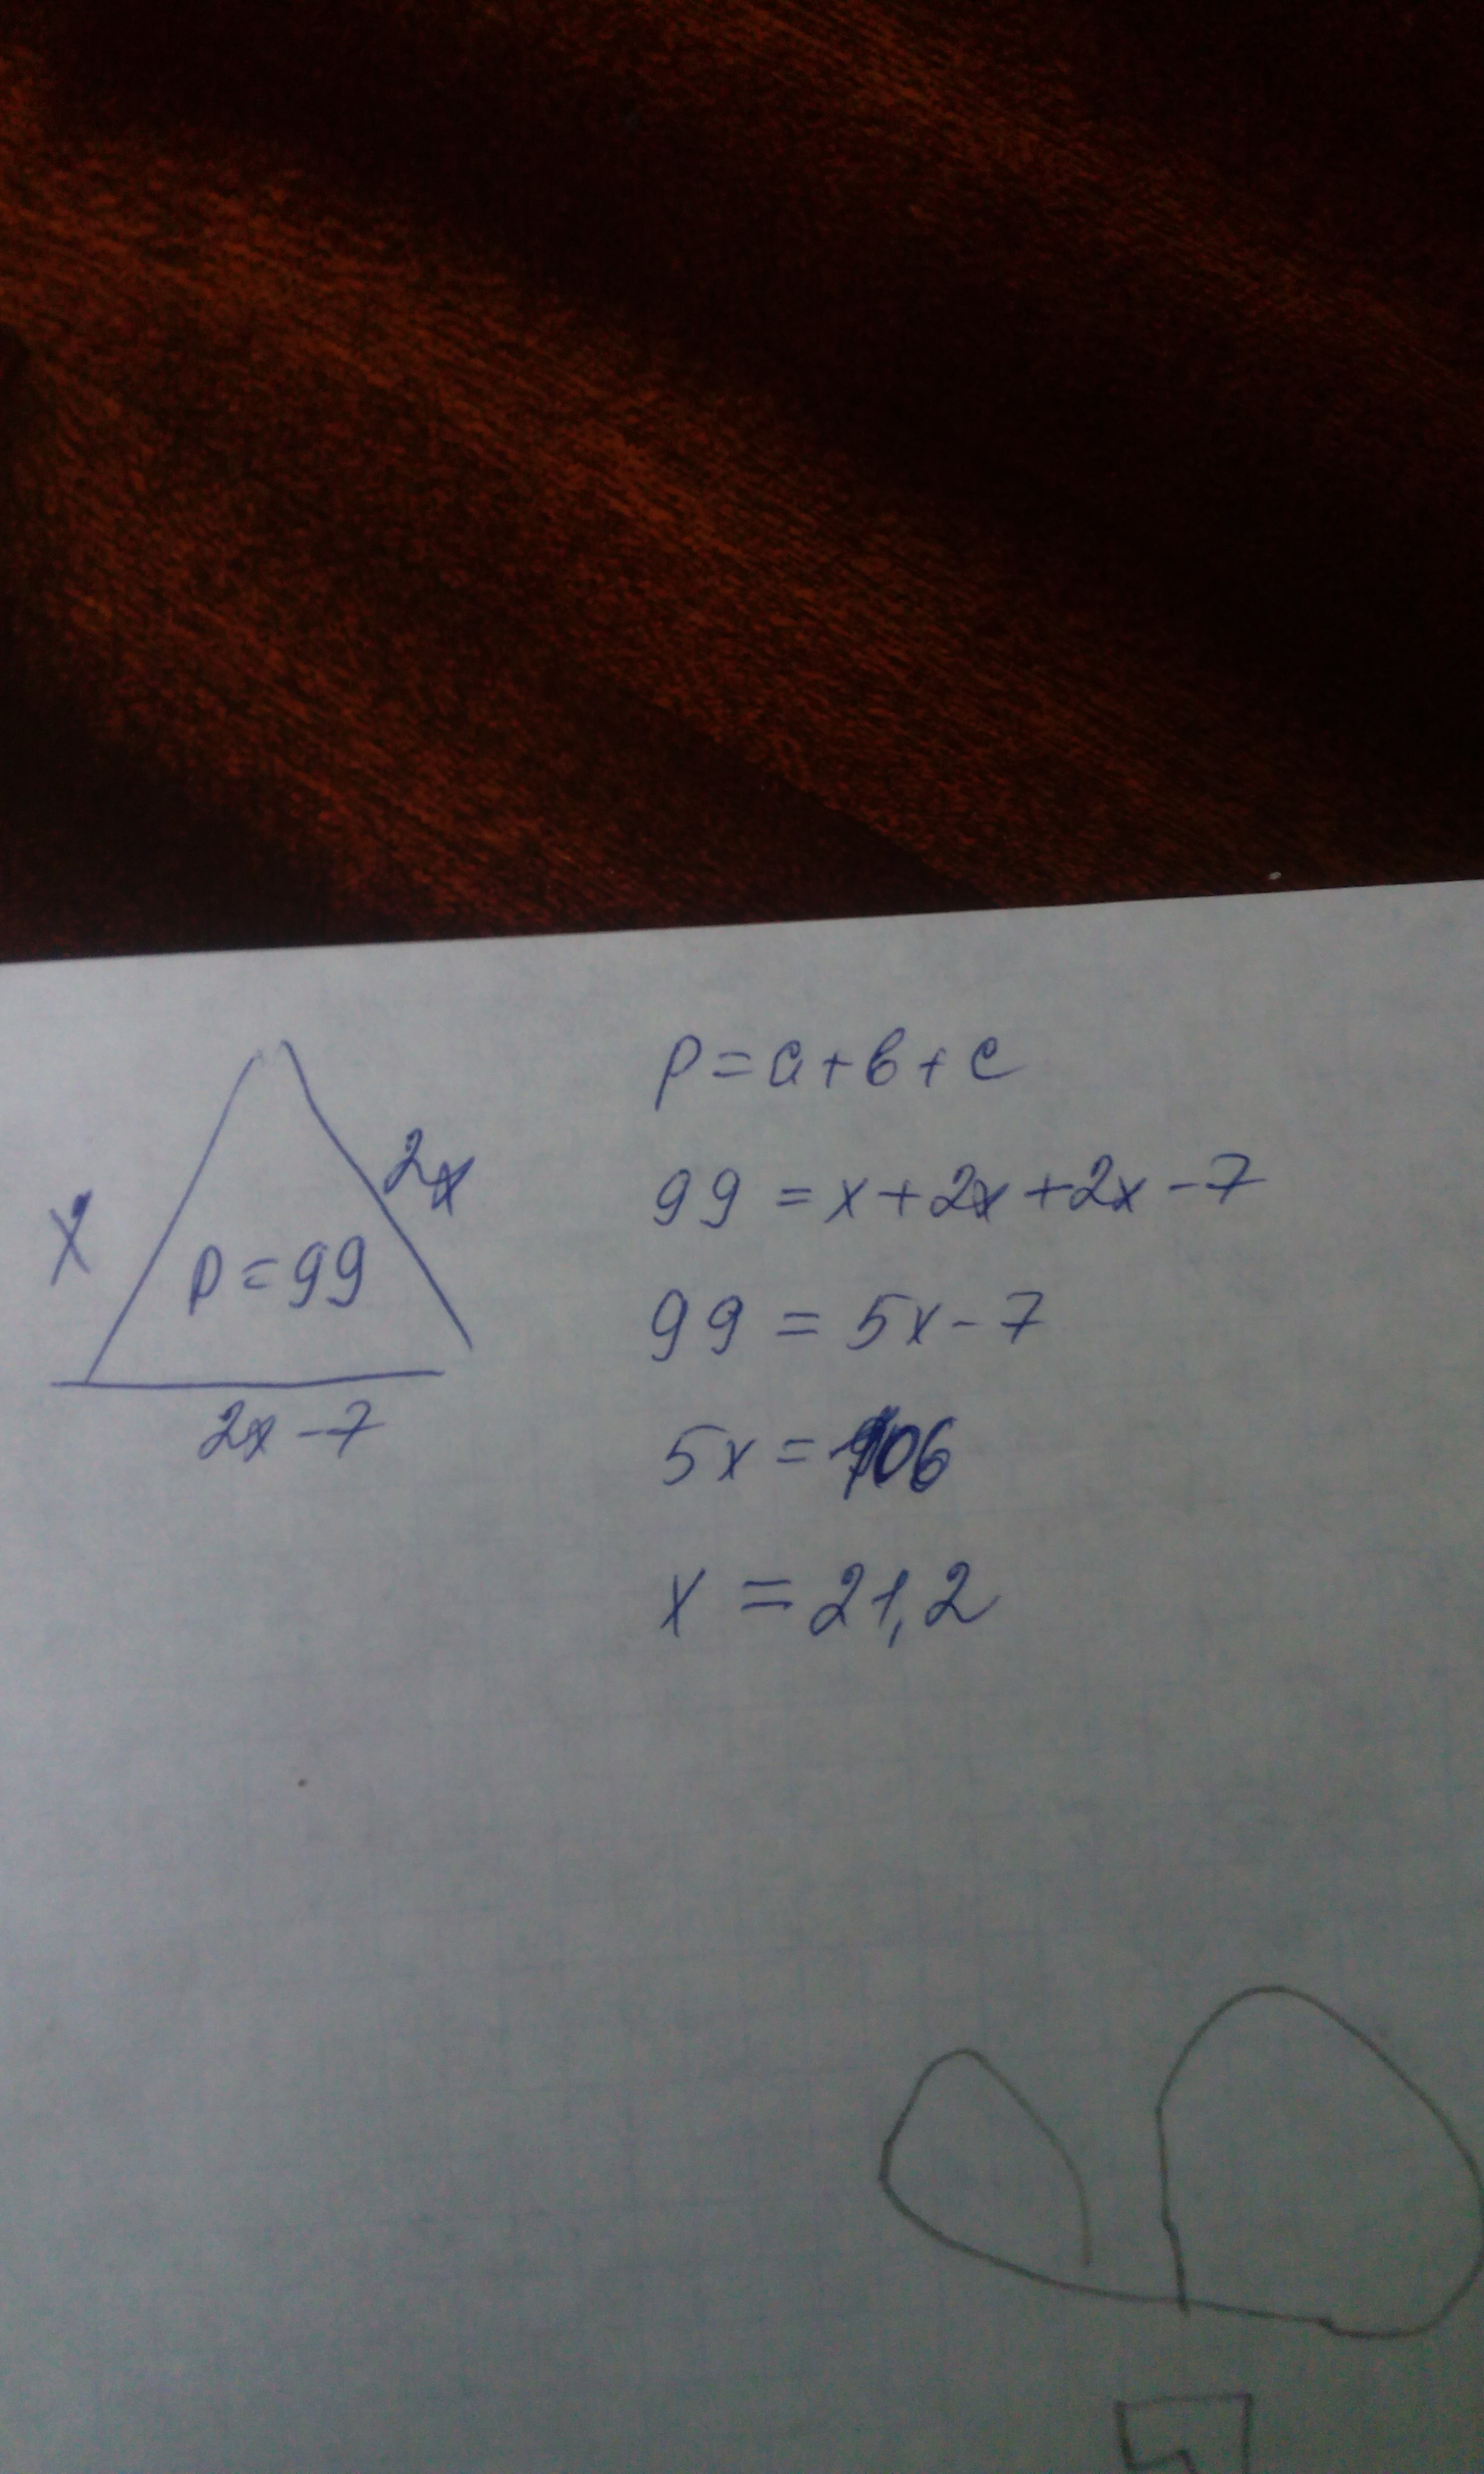 x
2x
P=99
2x-7
P=a+b+c
99=x+2x+2x-7
99=5x-7
5x=106
x=21,2